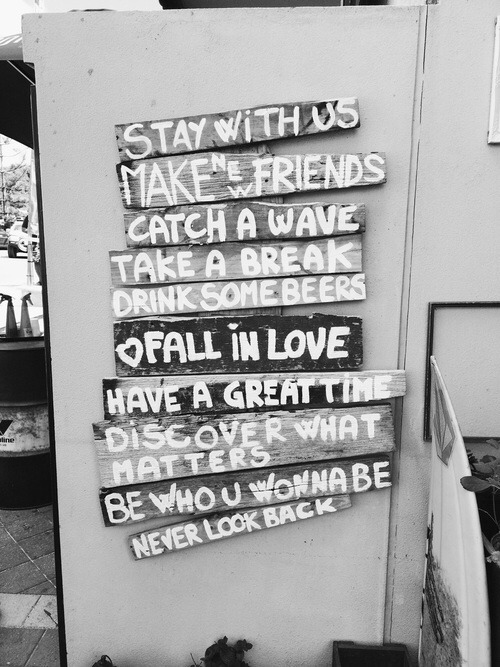 STAY WiTH US
MAKE NEW FRIENDS
CATCH A WAVE
TAKE A BREAK
DRINK SOME BEERS
FALL iN LOVE
HAVE A GREAT TiME
DiSCOVER WHAT
MATTERS
BE WHO U WONNA BE
NEVER LOOK BACK